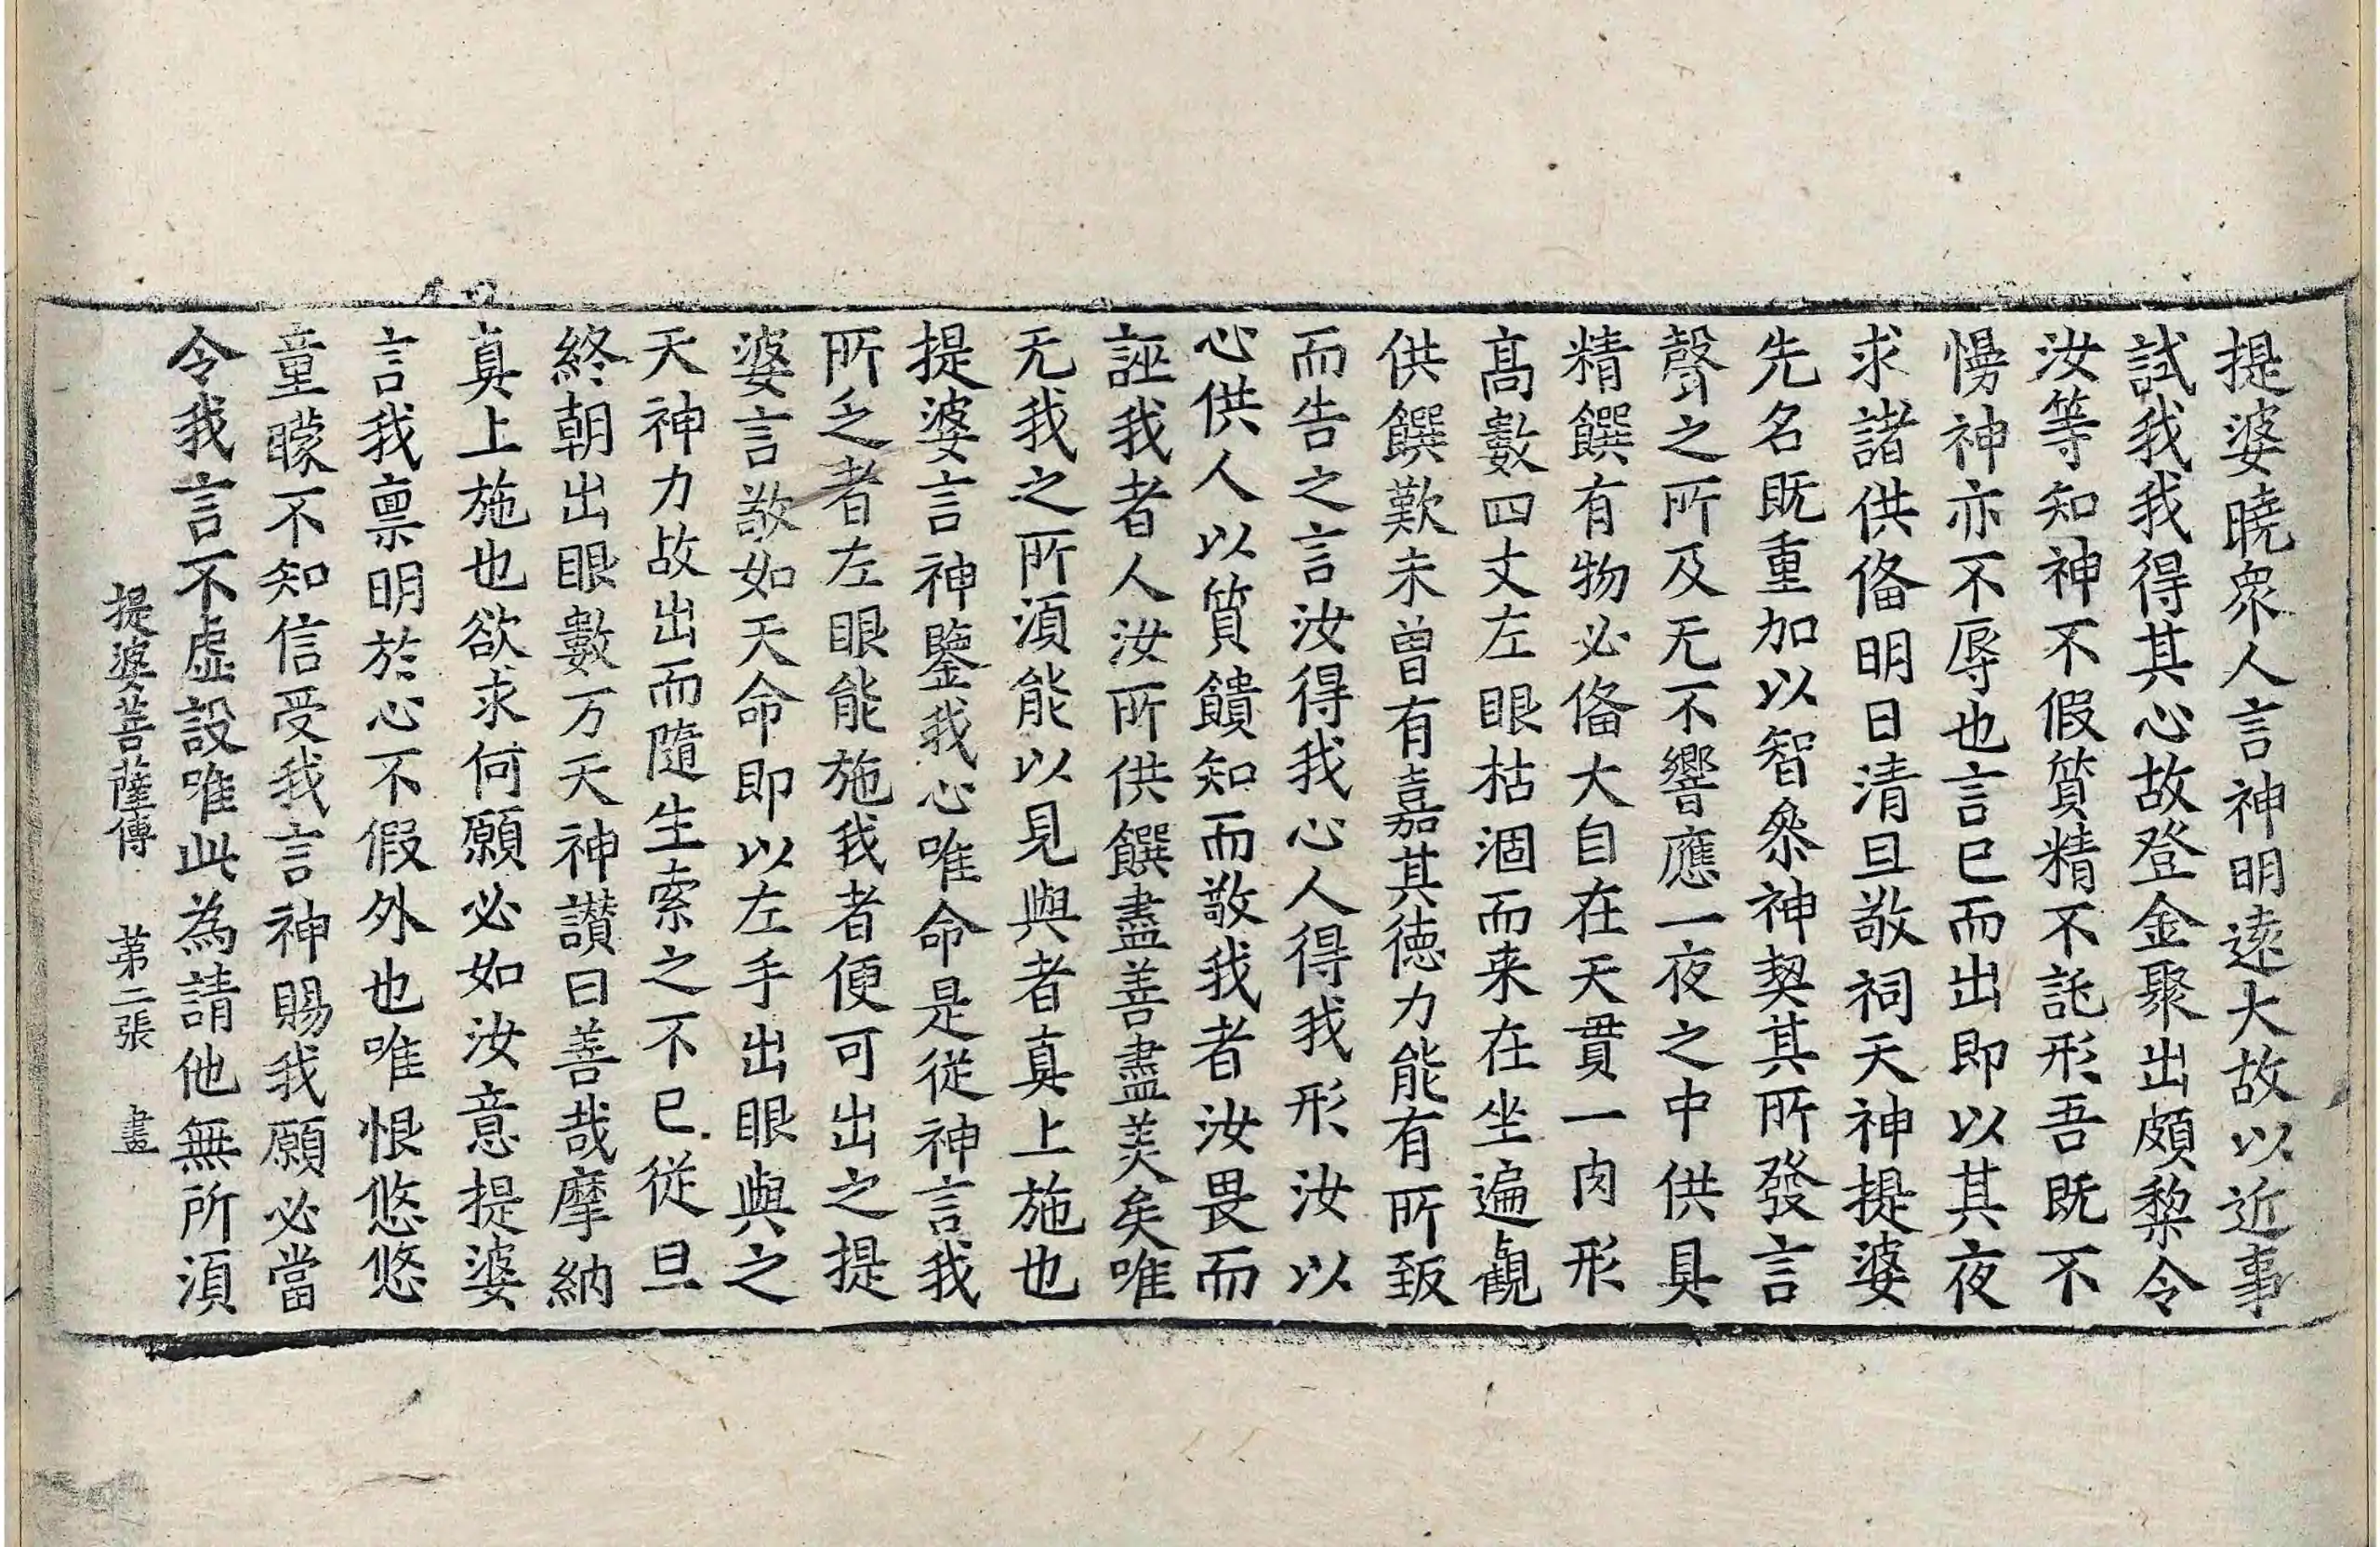 提婆曉衆人言神明遠大故以近事
試我我得其心故登金聚出頗黎令
汝等知神不假質精不託形吾既不
慢神亦不辱也言已而出即以其夜
求諸供俻明日清旦敬祠天神提婆
先名既重加以智叅神契其所發言
聲之所及无不響應一夜之中供具
精饌有物必俻大自在天貫一肉形
髙數四丈左眼枯涸而来在坐遍觀
供饌歎未曾有嘉其德力能有所致
而告之言汝得我心人得我形汝以
心供人以質饋知而敬我者汝畏而
誣我者人汝所供饌盡善盡美矣唯
无我之所湏能以見與者真上施也
提婆言神鑒我心唯命是從神言我
所乏者左眼能施我者便可出之提
婆言敬如天命即以左手出眼與之
天神力故出而隨生索之不已從旦
終朝出眼數万天神讃曰善哉摩納
真上施也欲求何願必如汝意提婆
言我禀明於心不假外也唯恨悠悠
童矇不知信受我言神賜我願必當
令我言不虛設唯此為請他無所湏
提婆菩薩傳 苐二張 𦘕